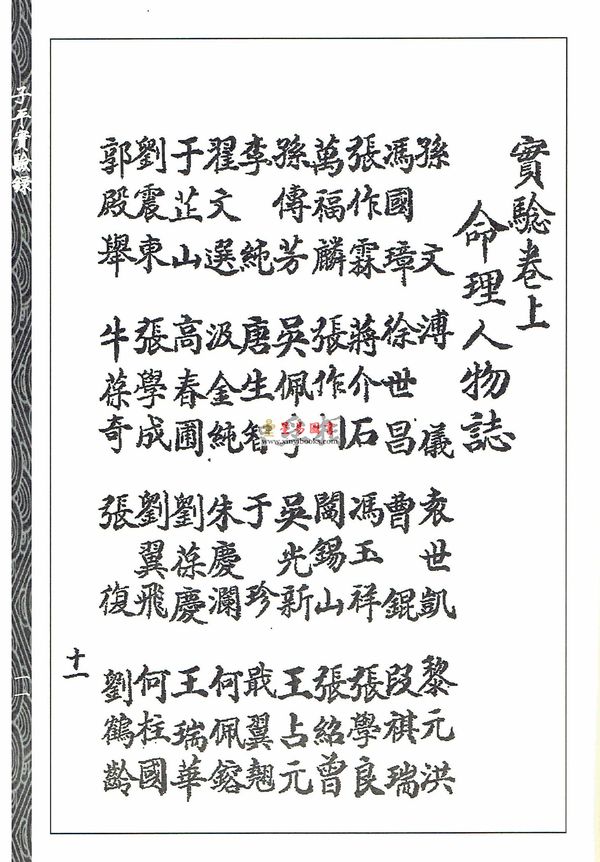 實驗卷上
命理人物誌
孫文 溥儀 袁世凱 黎元洪
馮國璋 徐世昌 曹錕 段祺瑞
張作霖 蔣介石 馮玉祥 張學良
萬福麟 張作 閻錫山 張紹曾
孫傳芳 吳佩孚 吳光新 王占元
李純 唐生智 于珍 戢翼翹
翟文選 汲金純 朱慶瀾 何佩鎔
于芷山 高春圃 劉葆慶 王瑞華
劉震東 張學成 劉翼飛 何柱國
郭殿舉 牛葆奇 張復 劉鶴齡
十一
子平實驗錄
一一
易图書
www.xinyibooks.com